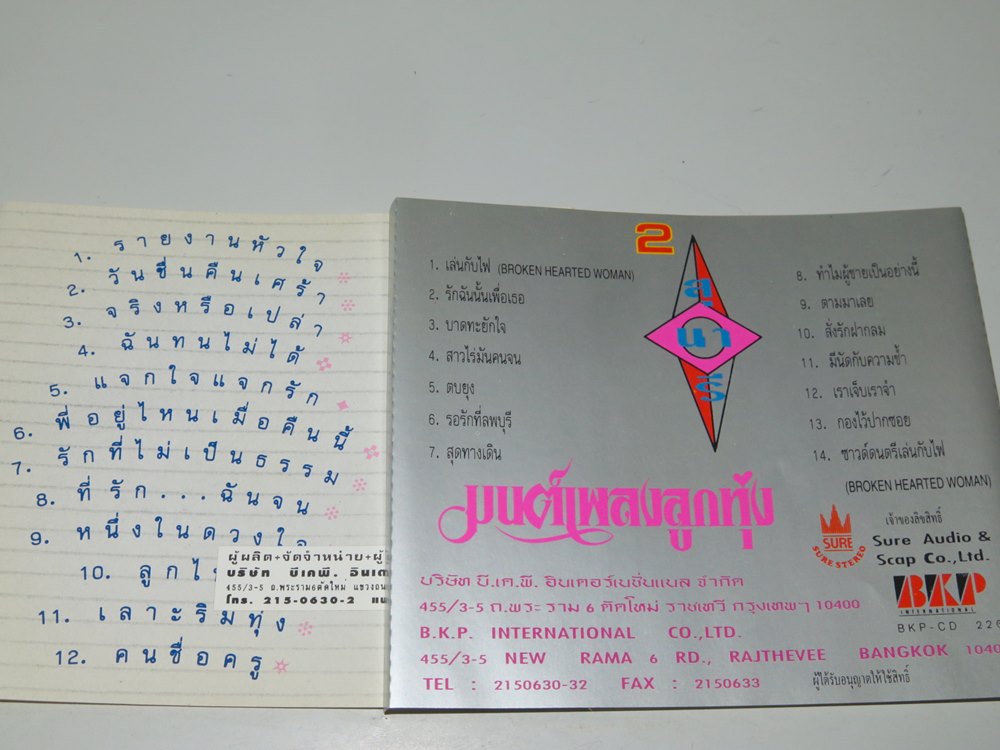 1. รายงานหัวใจ
2. วันชื่นคืนเศร้า
3. จริงหรือเปล่า
4. ฉันทนไม่ได้
5. แจกใจแจกรัก
6. พี่อยู่ไหนเมื่อคืนนี้
7. รักที่ไม่เป็นธรรม
8. ที่รัก...ฉันจน
9. หนึ่งในดวงใจ
10. ลูกไ
11. เลาะริมทุ่ง
12. คนชื่อครู
ผู้ผลิต+จัดจำหน่าย+ผู้
บริษัท บีเคพี. อินเต
455/3-5 ถ.พระราม6ตัดใหม่ แขวงถน
โทร. 215-0630-2
2
สุ
นา
รี
1. เล่นกับไฟ (BROKEN HEARTED WOMAN)
2. รักฉันนั้นเพื่อเธอ
3. บาดทะยักใจ
4. สาวไร่มันคนจน
5. ตบยุง
6. รอรักที่ลพบุรี
7. สุดทางเดิน
8. ทำไมผู้ชายเป็นอย่างนี้
9. ตามมาเลย
10. สั่งรักฝากลม
11. มีนัดกับความช้ำ
12. เราเจ็บเราจำ
13. กองไว้ปากซอย
14. ซาวด์ดนตรีเล่นกับไฟ
(BROKEN HEARTED WOMAN)
มนต์เพลงลูกทุ่ง
บริษัท บี.เค.พี. อินเตอร์เนชั่นแนล จำกัด
455/3-5 ถ.พระราม 6 ตัดใหม่ ราชเทวี กรุงเทพฯ 10400
B.K.P. INTERNATIONAL CO.,LTD.
455/3-5 NEW RAMA 6 RD., RAJTHEVEE BANGKOK 1040
TEL : 2150630-32 FAX : 2150633
SURE
SURE STEREO
เจ้าของลิขสิทธิ์
Sure Audio &
Scap Co.,Ltd.
BKP
INTERNATIONAL
BKP-CD 226
ผู้ได้รับอนุญาตให้ใช้สิทธิ์